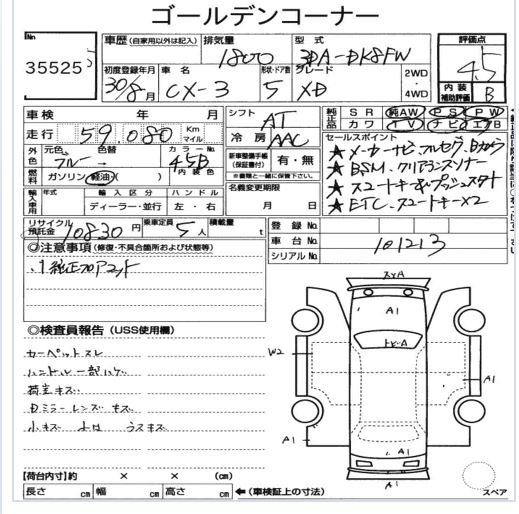 ゴールデンコーナー
No
35525
車歴 (自家用以外は記入) 排気量 型式
1800 3DA-DK8FW
評価点
4.5
内装 補助評価 B
初度登録年月 車名 形状・ドア数 グレード 2WD
30/8月 CX-3 5 XD 4WD
車検 年 月
シフト AT
純正品 SR 純AW PS PW
カワ TV ナビ エアB
走行 59,080 Km マイル
冷房 AAC
セールスポイント
外色 元色 色替 カラーNo.
ブルー 45B
内装色
新車整備手帳(保証書付) 有・無
※書類と一緒に保管して下さい。
★メーカーナビ、フルセグ、Bカメラ
★BSM、クリアランスソナー
★スマートキー&プッシュスタート
★ETC、スマートキー×2
燃料 ガソリン 軽油 ( )
名義変更期限
月 日
輸入車用 年式 輸入区分 ハンドル
ディーラー・並行 左・右
リサイクル預託金 10830円 乗車定員 5人 積載量 t
登録No.
車台No. 101213
シリアルNo.
◎注意事項 (修復・不具合箇所および状態等)
.1純正フロアマット
◎検査員報告 (USS使用欄)
カーペットスレ
ハンドル一部ハゲ
荷室キズ
Dミラーレンズキズ
小キズ 小凹 うスキズ
XXA
A1
トビ-A
W2
A1
A1
A1
A1
スペア
【荷台内寸】約 × × (cm)
長さ cm 幅 cm 高さ cm ←(車検証上の寸法)